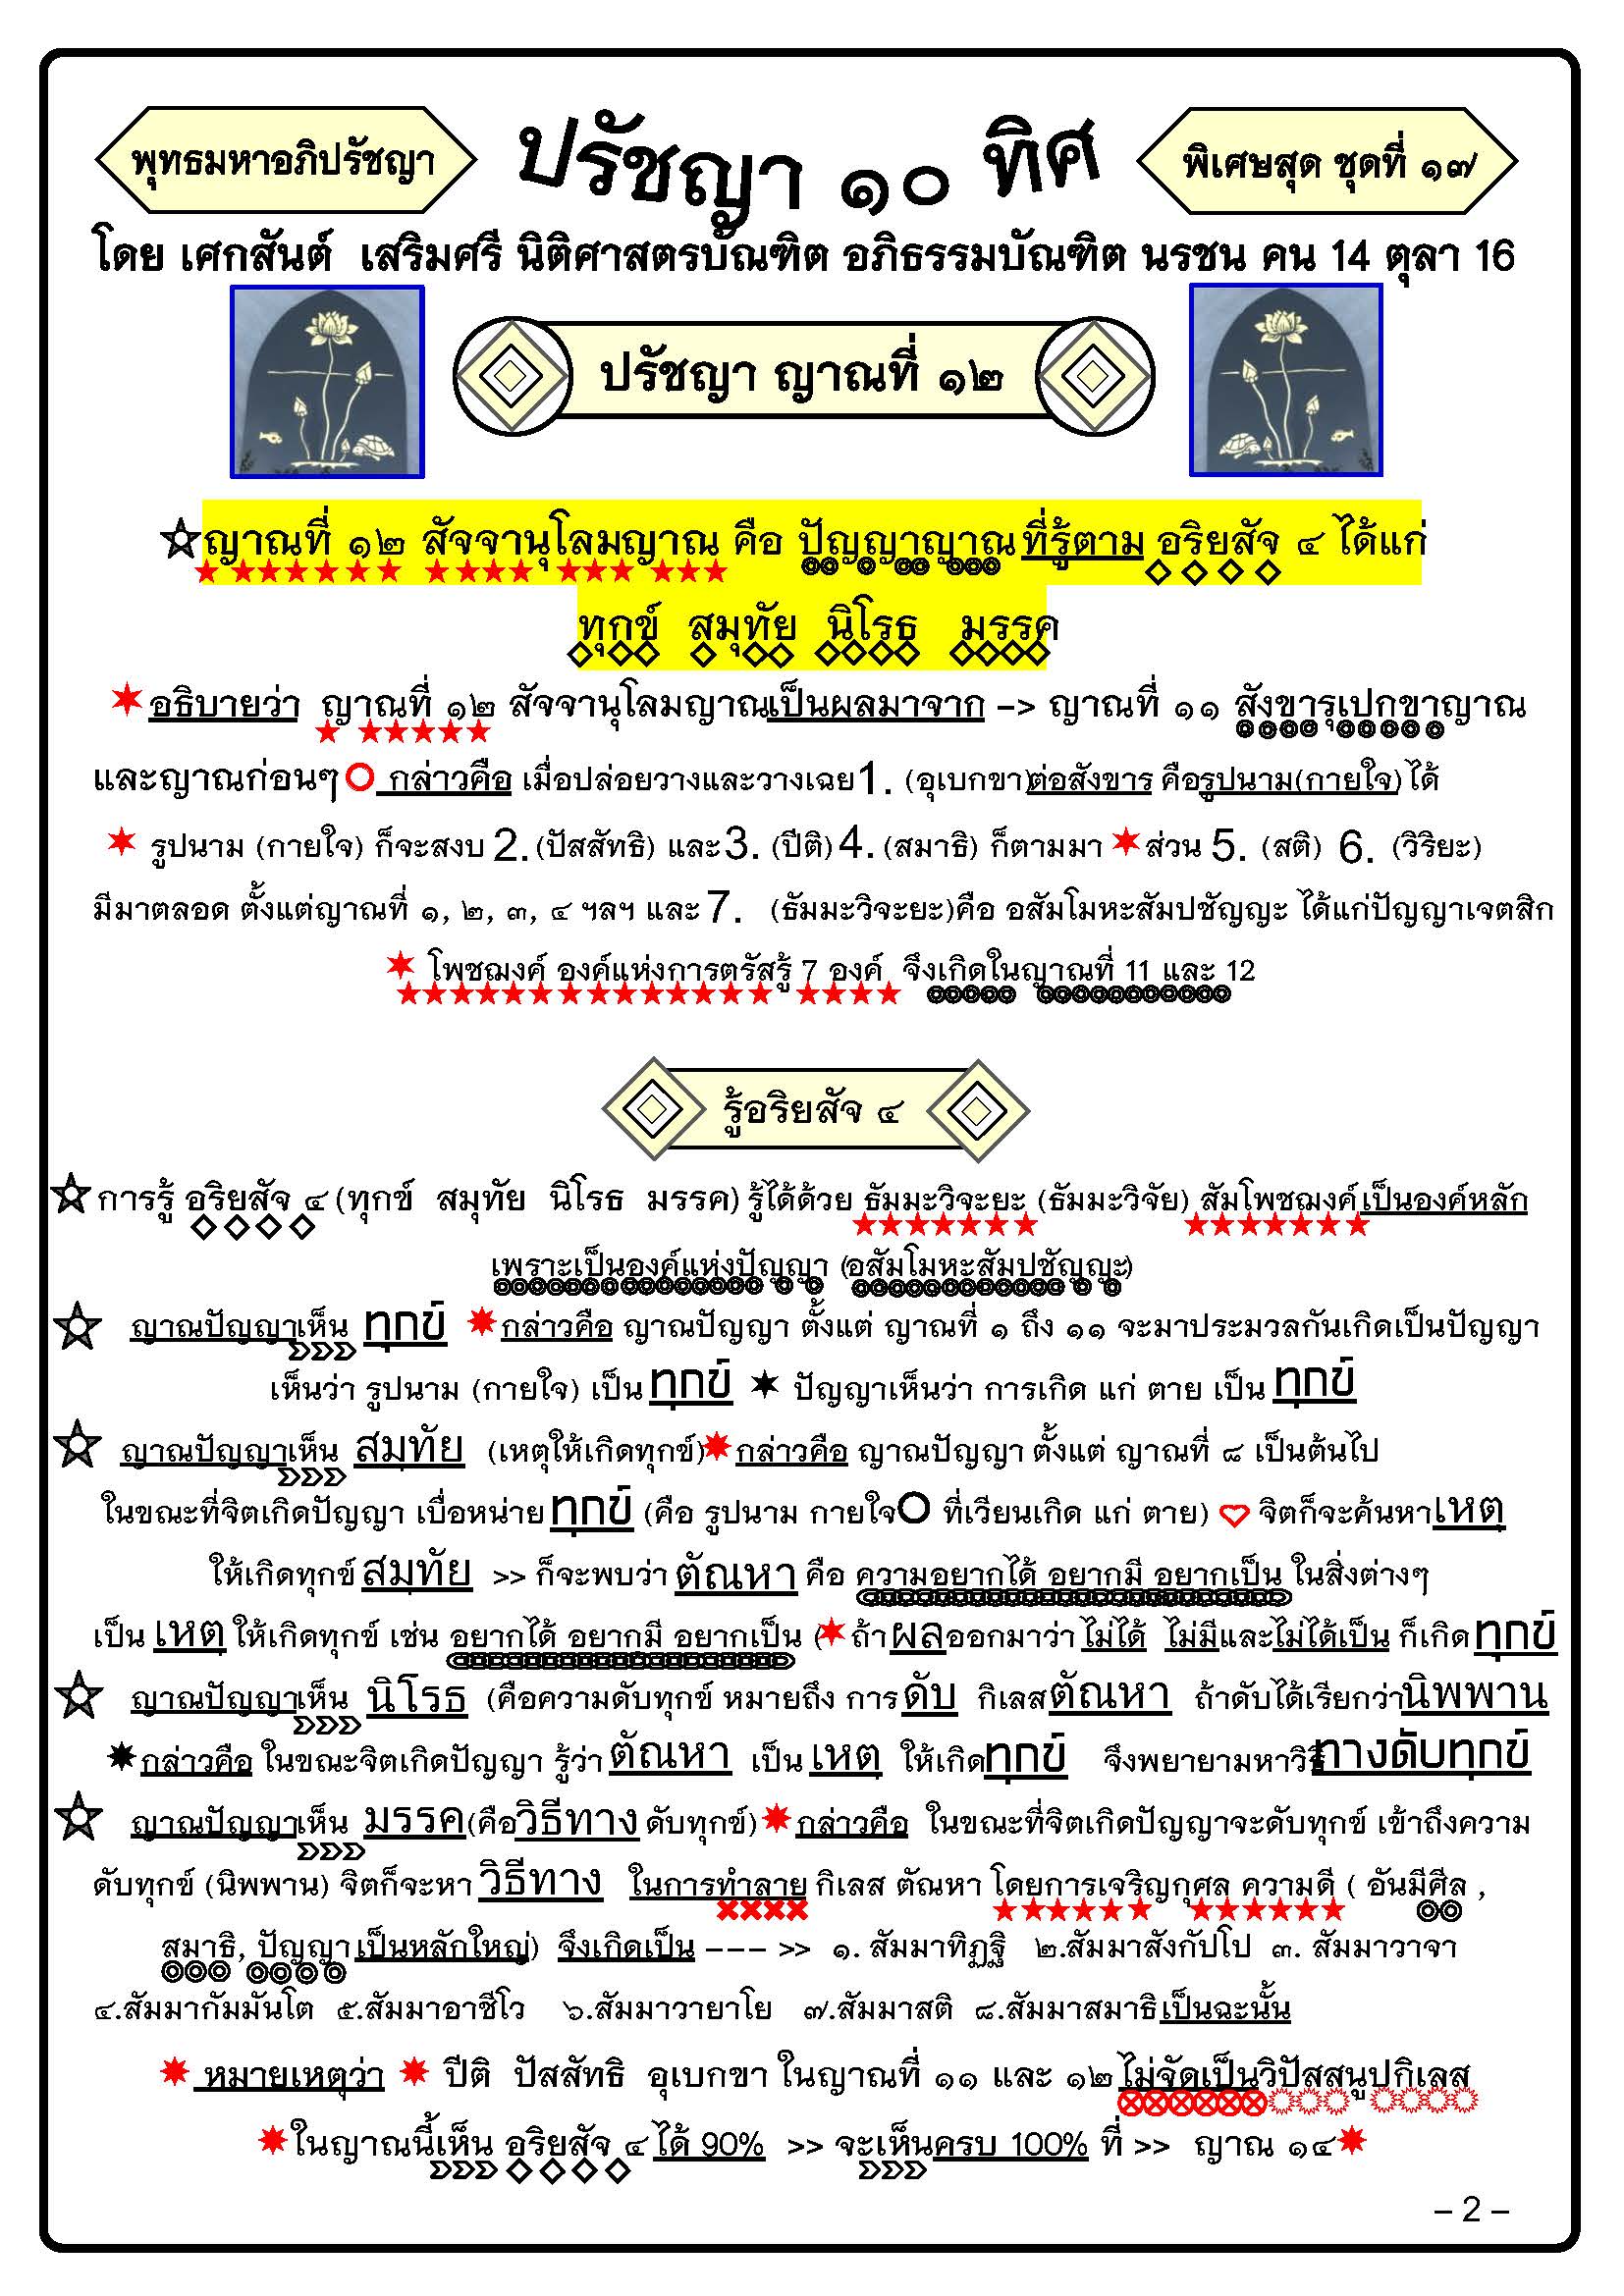 พุทธมหาอภิปรัชญา ปรัชญา ๑๐ ทิศ พิเศษสุด ชุดที่ ๑๗
โดย เศกสันต์ เสริมศรี นิติศาสตรบัณฑิต อภิธรรมบัณฑิต นรชน คน 14 ตุลา 16
ปรัชญา ญาณที่ ๑๒
ญาณที่ ๑๒ สัจจานุโลมญาณ คือ ปัญญาญาณ ที่รู้ตาม อริยสัจ ๔ ได้แก่
ทุกข์ สมุทัย นิโรธ มรรค
อธิบายว่า ญาณที่ ๑๒ สัจจานุโลมญาณเป็นผลมาจาก -> ญาณที่ ๑๑ สังขารุเปกขาญาณ
และญาณก่อนๆ กล่าวคือ เมื่อปล่อยวางและวางเฉย 1. (อุเบกขา)ต่อสังขาร คือรูปนาม(กายใจ) ได้
รูปนาม (กายใจ) ก็จะสงบ 2. (ปัสสัทธิ) และ 3. (ปีติ) 4. (สมาธิ) ก็ตามมา ส่วน 5. (สติ) 6. (วิริยะ)
มีมาตลอด ตั้งแต่ญาณที่ ๑, ๒, ๓, ๔ ฯลฯ และ 7. (ธัมมะวิจะยะ)คือ อสัมโมหะสัมปชัญญะ ได้แก่ปัญญาเจตสิก
โพชฌงค์ องค์แห่งการตรัสรู้ 7 องค์ จึงเกิดในญาณที่ 11 และ 12
รู้อริยสัจ ๔
การรู้ อริยสัจ ๔ (ทุกข์ สมุทัย นิโรธ มรรค) รู้ได้ด้วย ธัมมะวิจะยะ (ธัมมะวิจัย) สัมโพชฌงค์ เป็นองค์หลัก
เพราะเป็นองค์แห่งปัญญา (อสัมโมหะสัมปชัญญะ)
ญาณปัญญาเห็น ทุกข์ กล่าวคือ ญาณปัญญา ตั้งแต่ ญาณที่ ๑ ถึง ๑๑ จะมาประมวลกันเกิดเป็นปัญญา
เห็นว่า รูปนาม (กายใจ) เป็น ทุกข์ ปัญญาเห็นว่า การเกิด แก่ ตาย เป็น ทุกข์
ญาณปัญญาเห็น สมุทัย (เหตุให้เกิดทุกข์) กล่าวคือ ญาณปัญญา ตั้งแต่ ญาณที่ ๘ เป็นต้นไป
ในขณะที่จิตเกิดปัญญา เบื่อหน่าย ทุกข์ (คือ รูปนาม กายใจ ที่เวียนเกิด แก่ ตาย) จิตก็จะค้นหา เหตุ
ให้เกิดทุกข์ สมุทัย >> ก็จะพบว่า ตัณหา คือ ความอยากได้ อยากมี อยากเป็น ในสิ่งต่างๆ
เป็น เหตุ ให้เกิดทุกข์ เช่น อยากได้ อยากมี อยากเป็น ( ถ้า ผล ออกมาว่า ไม่ได้ ไม่มีและไม่ได้เป็น ก็เกิด ทุกข์
ญาณปัญญาเห็น นิโรธ (คือความดับทุกข์ หมายถึง การ ดับ กิเลส ตัณหา ถ้าดับได้เรียกว่า นิพพาน
กล่าวคือ ในขณะจิตเกิดปัญญา รู้ว่า ตัณหา เป็น เหตุ ให้เกิด ทุกข์ จึงพยายามหาวิธี ทางดับทุกข์
ญาณปัญญาเห็น มรรค (คือ วิธีทาง ดับทุกข์) กล่าวคือ ในขณะที่จิตเกิดปัญญาจะดับทุกข์ เข้าถึงความ
ดับทุกข์ (นิพพาน) จิตก็จะหา วิธีทาง ในการทำลาย กิเลส ตัณหา โดยการเจริญกุศล ความดี ( อันมีศีล ,
สมาธิ, ปัญญา เป็นหลักใหญ่) จึงเกิดเป็น --- >> ๑. สัมมาทิฏฐิ ๒.สัมมาสังกัปโป ๓. สัมมาวาจา
๔.สัมมากัมมันโต ๕.สัมมาอาชีโว ๖.สัมมาวายาโย ๗.สัมมาสติ ๘.สัมมาสมาธิ เป็นฉะนั้น
หมายเหตุว่า ปีติ ปัสสัทธิ อุเบกขา ในญาณที่ ๑๑ และ ๑๒ ไม่จัดเป็นวิปัสสนูปกิเลส
ในญาณนี้เห็น อริยสัจ ๔ ได้ 90% >> จะเห็นครบ 100% ที่ >> ญาณ ๑๔
– 2 –